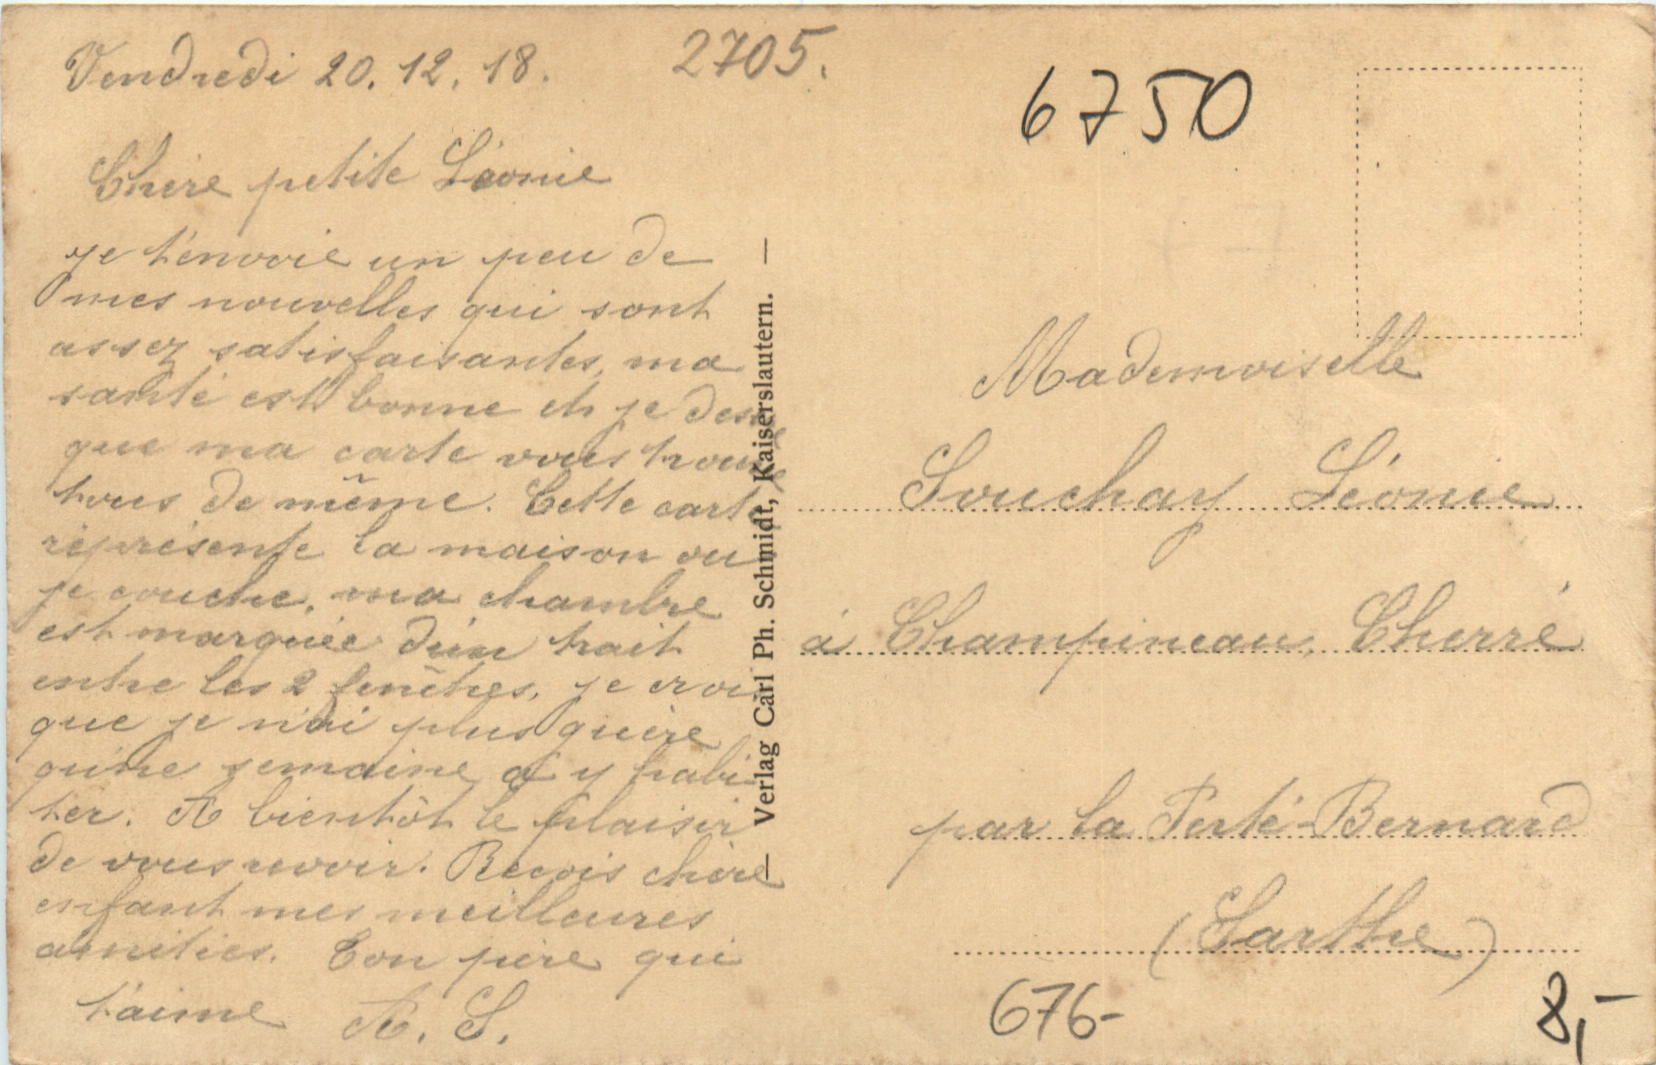 Vendredi 20.12.18.
2705.
Chère petite Léonie
je t'envoie un peu de
mes nouvelles qui sont
assez satisfaisantes, ma
santé est bonne et je désire
que ma carte vous trouve
tous de même. Cette carte
représente la maison ou
je couche, ma chambre
est marquée d'un trait
entre les 2 fenêtres, je crois
que je n'ai plus guère
qu'une semaine à y habi
ter. A bientôt le plaisir
de vous revoir. Reçois chère
enfant mes meilleures
amitiés. Ton père qui
t'aime A. S.
— Verlag Carl Ph. Schmidt, Kaiserslautern. —
6750
Mademoiselle
Souchay Léonie
à Champineau, Cherré
par la Ferté-Bernard
(Sarthe)
676-
8,-